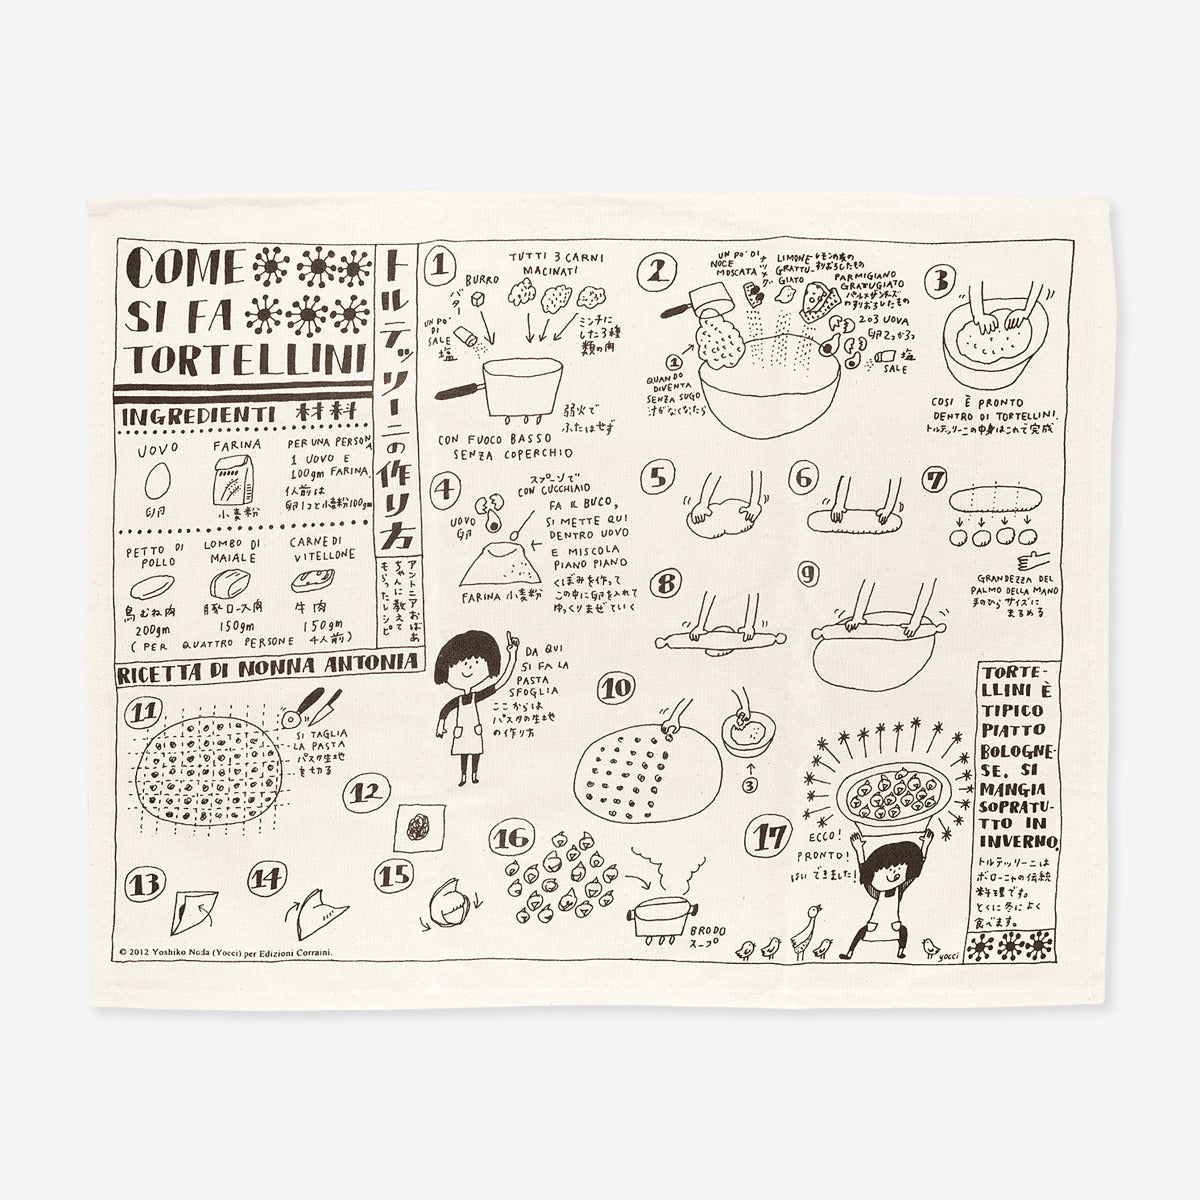 COME
SI FA
TORTELLINI
トルテッリーニの作り方
INGREDIENTI 材料
UOVO
卵
FARINA
小麦粉
PER UNA PERSONA
1 UOVO E
100gm FARINA
1人前は
卵1コと小麦粉100gm
PETTO DI
POLLO
鳥むね肉
200gm
LOMBO DI
MAIALE
豚ロース肉
150gm
CARNE DI
VITELLONE
牛肉
150gm
(PER QUATTRO PERSONE 4人前)
アントニアおばあ
ちゃんに教えて
もらったレシピ
RICETTA DI NONNA ANTONIA
1
BURRO
バター
TUTTI 3 CARNI
MACINATI
UN PO'
DI
SALE
塩
ミンチに
した3種
類の肉
弱火で
ふたはせず
CON FUOCO BASSO
SENZA COPERCHIO
2
UN PO' DI
NOCE
MOSCATA
ナツメグ
LIMONE
GRATTU-
GIATO
レモンの皮の
すりおろしたもの
PARMIGIANO
GRATUGIATO
パルメザンチーズ
のすりおろしたもの
2 o 3 UOVA
卵2つか3つ
塩
SALE
1
QUANDO
DIVENTA
SENZA SUGO
汁がなくなったら
3
COSI È PRONTO
DENTRO DI TORTELLINI.
トルテッリーニの中身はこれで完成
4
UOVO
卵
スプーンで
CON CUCCHIAIO
FA IL BUCO,
SI METTE QUI
DENTRO UOVO
E MISCOLA
PIANO PIANO
くぼみを作って
この中に卵を入れて
ゆっくりまぜていく
FARINA 小麦粉
5
6
7
GRANDEZZA DEL
PALMO DELLA MANO
手のひらサイズに
まるめる
8
9
DA QUI
SI FA LA
PASTA
SFOGLIA
ここからは
パスタの生地
の作り方
10
3
11
SI TAGLIA
LA PASTA
パスタ生地
を切る
12
13
14
15
16
BRODO
スープ
17
ECCO!
PRONTO!
はい できました!
TORTE-
LLINI È
TIPICO
PIATTO
BOLOGNE-
SE. SI
MANGIA
SOPRATU-
TTO IN
INVERNO.
トルテッリーニは
ボローニャの伝統
料理です。
とくに冬によく
食べます。
yocci
© 2012 Yoshiko Noda (Yocci) per Edizioni Corraini.